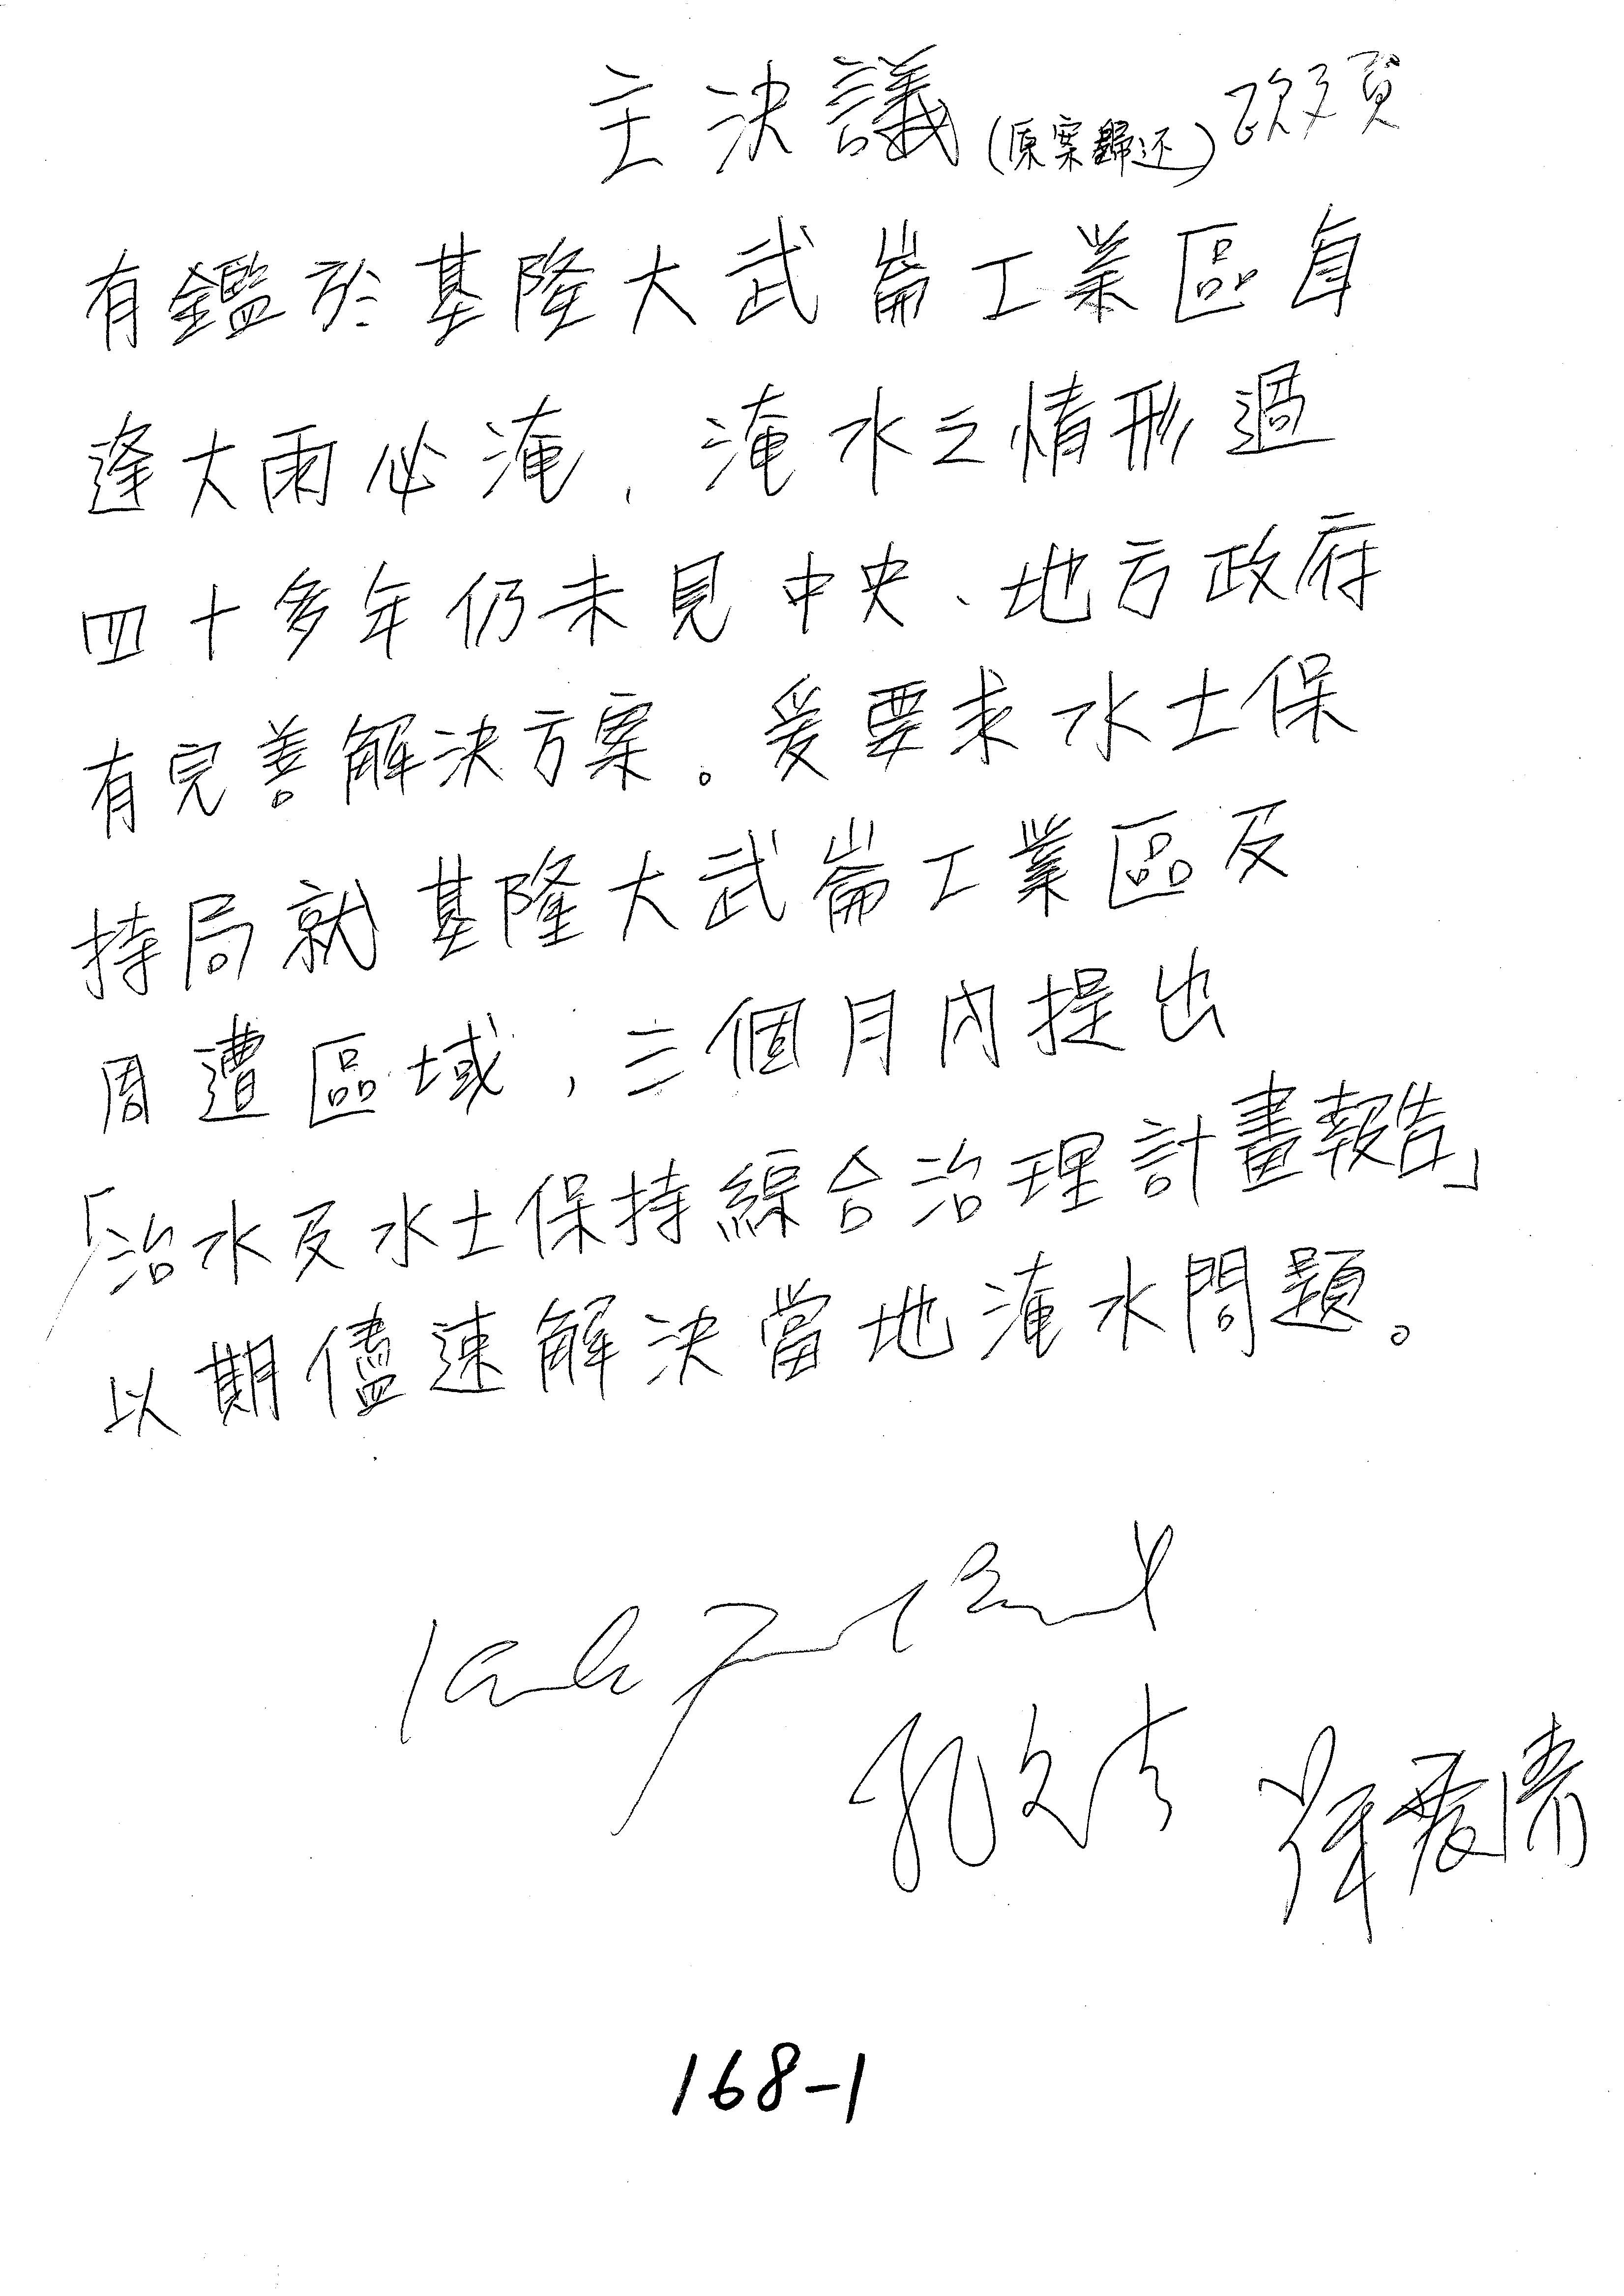 主決議(原案歸还)
有鑑於基隆大武崙工業區每
逢大雨必淹,淹水之情形過
四十多年仍未見中央、地方政府
有完善解決方案。爰要求水土保
持局就基隆大武崙工業區及
周遭區域,三個月內提出
「治水及水土保持綜合治理計畫報告」
以期儘速解決當地淹水問題。
孔文吉
168-1